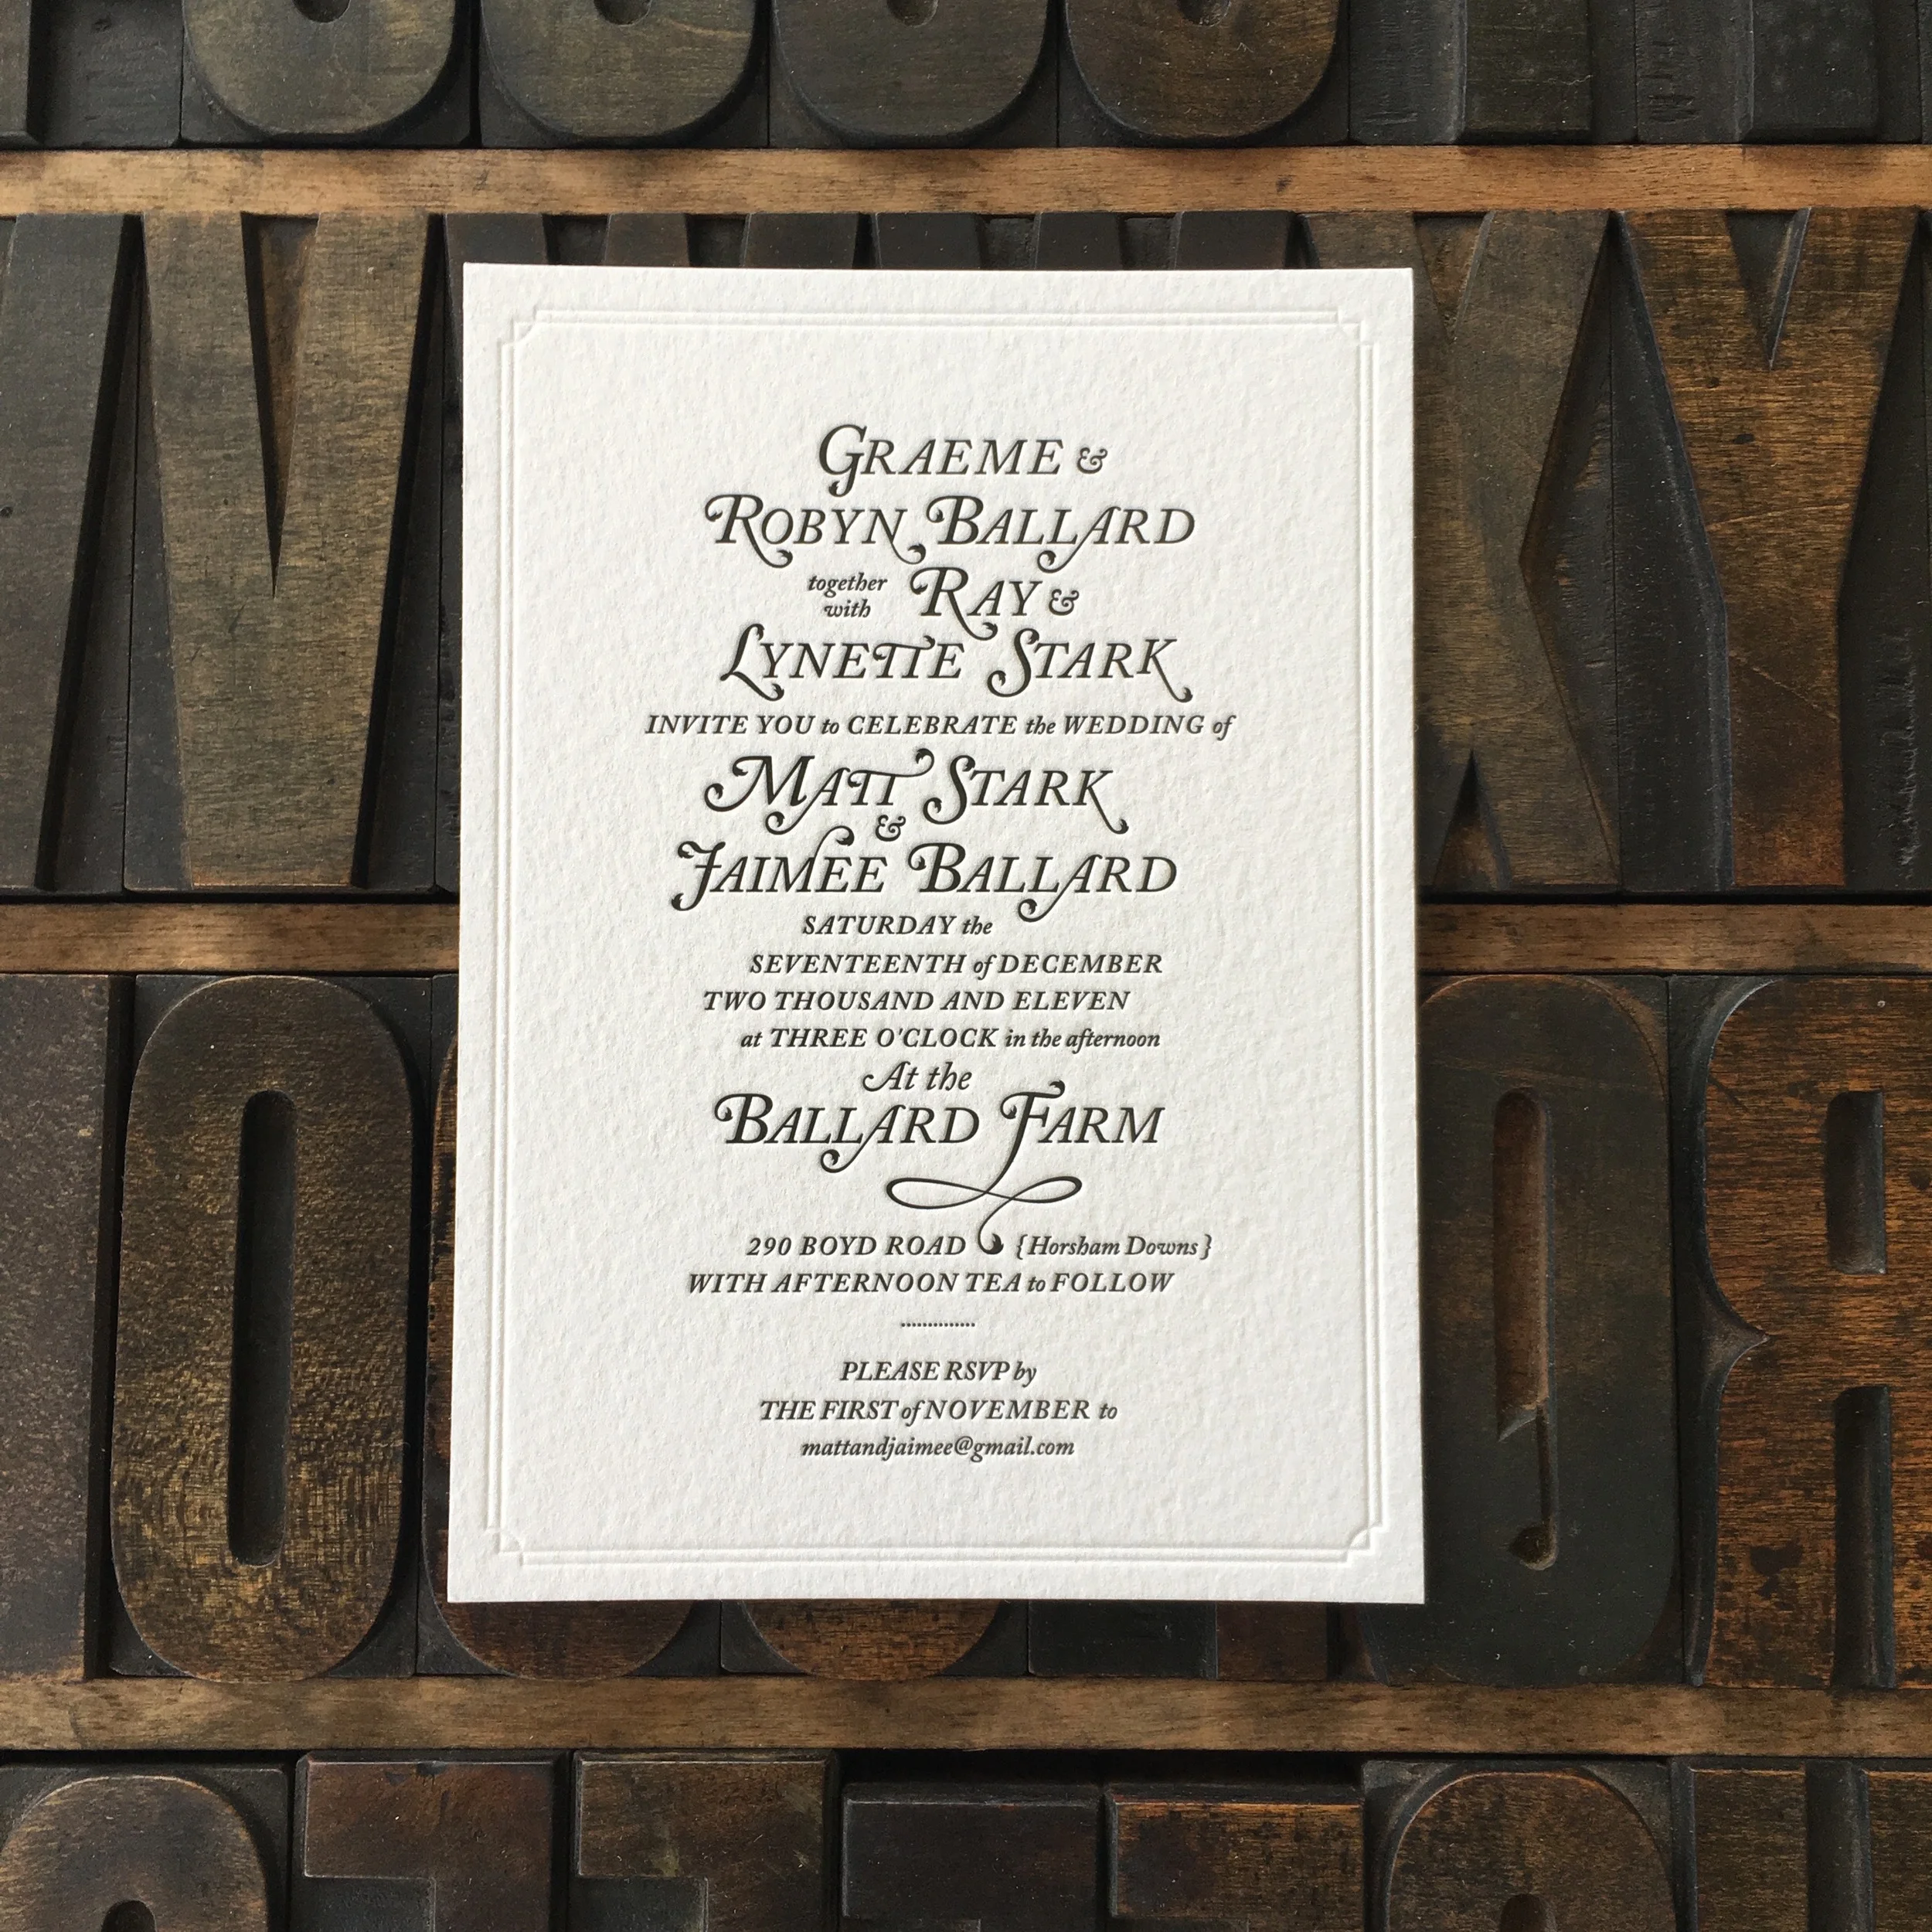 GRAEME &
ROBYN BALLARD
together with RAY &
LYNETTE STARK
INVITE YOU to CELEBRATE the WEDDING of
MATT STARK
&
JAIMEE BALLARD
SATURDAY the
SEVENTEENTH of DECEMBER
TWO THOUSAND AND ELEVEN
at THREE O'CLOCK in the afternoon
At the
BALLARD FARM
290 BOYD ROAD {Horsham Downs}
WITH AFTERNOON TEA to FOLLOW
PLEASE RSVP by
THE FIRST of NOVEMBER to
mattandjaimee@gmail.com